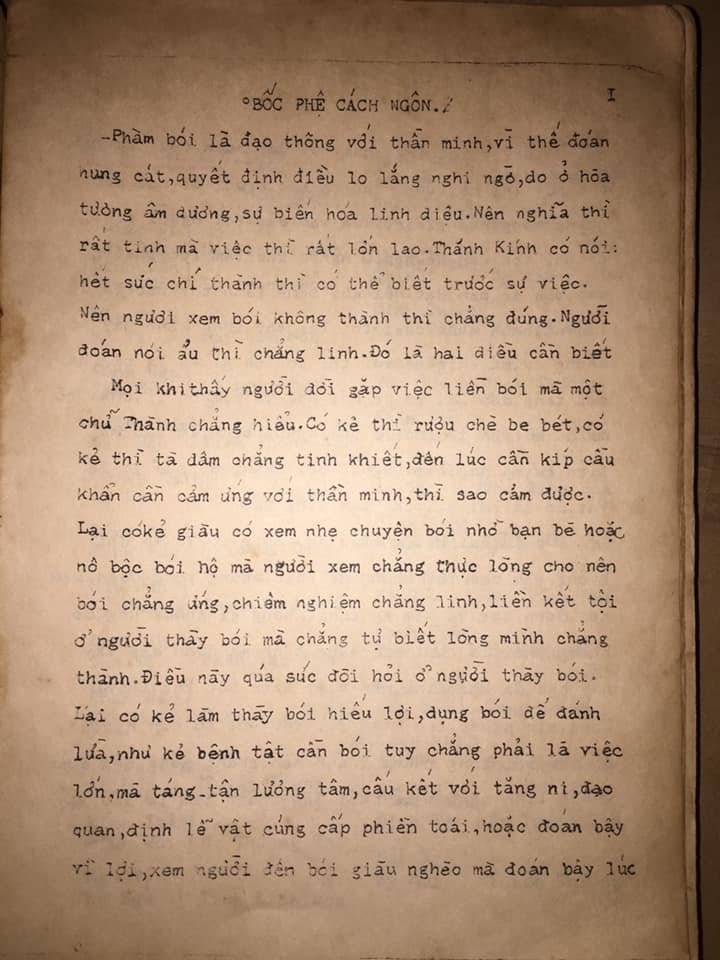 °BỐC PHỆ CÁCH NGÔN./ I
-Phàm bói là đạo thông với thần minh,vì thế đoán
hung cát,quyết định điều lo lắng nghi ngờ,do ở hōa
tượng âm dương,sự biến hóa linh diệu.Nên nghĩa thì
rất tinh mà việc thì rất lớn lao.Thánh Kinh có nói:
hết sức chí thành thì có thể biết trước sự việc.
Nên người xem bói không thành thì chẳng đúng.Người
đoán nói ẩu thì chẳng linh.Đó là hai diều cần biết
Mọi khithấy người đời gặp việc liền bói mà một
chữ Thành chẳng hiểu.Có kẻ thì rượu chè be bét,có
kẻ thì tà dâm chẳng tinh khiết,đến lúc cần kíp cầu
khẩn cần cảm ứng với thần minh,thì sao cảm được.
Lại cókẻ giầu có xem nhẹ chuyện bói nhờ bạn bè hoặc
nô bộc bói hộ mà người xem chẳng thực lòng cho nên
bói chẳng ứng,chiêm nghiệm chẳng linh,liền kết tội
ở người thầy bói mà chẳng tự biết lòng mình chẳng
thành.Điều này qúa sức đòi hỏi ở người thầy bói.
Lại có kẻ làm thầy bói hiếu lợi,dụng bói dể đánh
lừa,như kẻ bệnh tật cần bói tuy chẳng phải là việc
lớn,mà táng-tận lương tâm,cấu kết với tăng ni,đạo
quan,định lễ vật cúng cấp phiền toái,hoặc đoán bậy
vì lợi,xem người đến bói giầu nghèo mà đoán bậy lúc